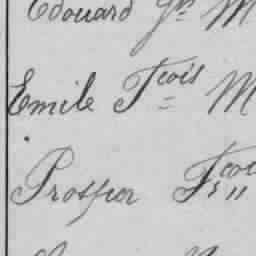 Edouard Jn M
Emile Fcois M
Prosper Fcoi